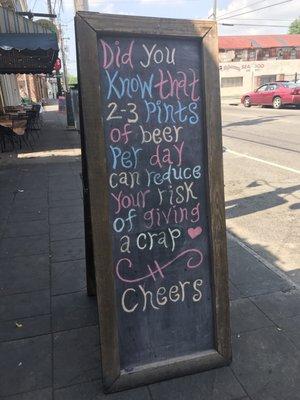 Did You
Know that
2-3 Pints
of beer
Per day
can reduce
your risk
of giving
a crap
Cheers